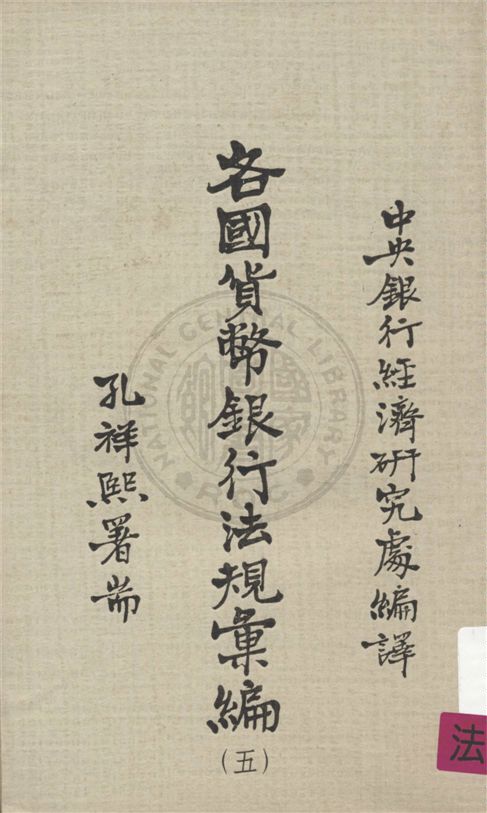 中央銀行經濟研究處編譯
各國貨幣銀行法規彙編
(五)
孔祥熙署耑
法
NATIONAL CENTRAL LIBRARY